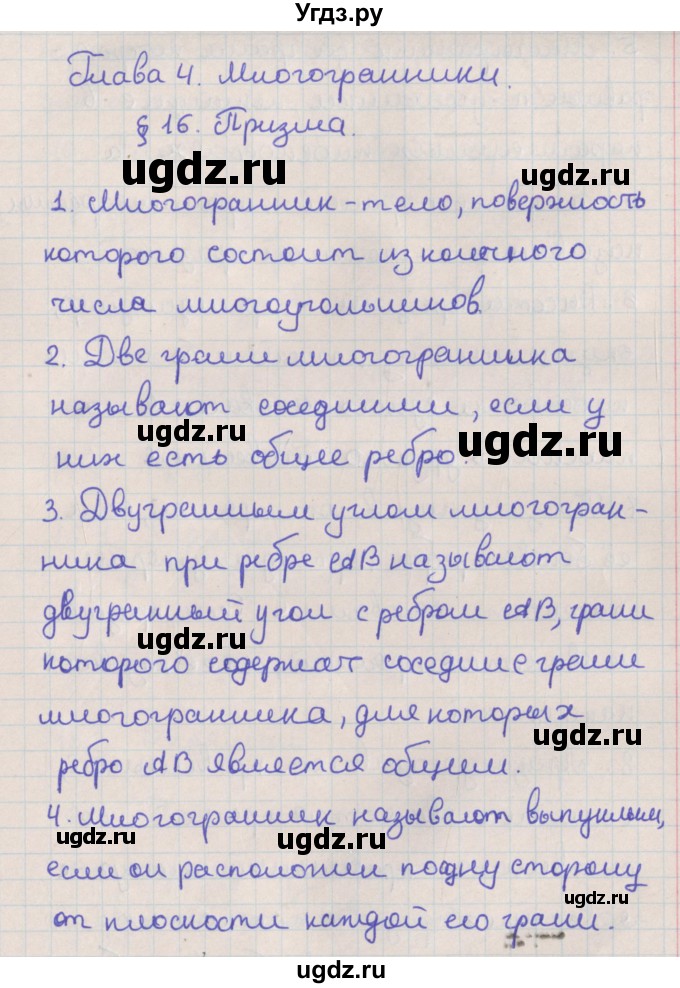 Угдз.ру
Глава 4. Многогранники.
§ 16. Призма.
ugdz.ru
ugdz.ru
1. Многогранник - тело, поверхность
которого состоит из конечного
числа многоугольников.
2. Две грани многогранника
называют соседними, если у
ugdz.ru
ugdz.ru
них есть общее ребро.
3. Двугранным углом многогран-
ника при ребре AB называют
двугранный угол с ребром AB, грани
ugdz.ru
которого содержат соседние грани
многогранника, для которых
ugdz.ru
ребро AB является общим.
4. Многогранник называют выпуклым,
ugdz.ru
если он расположен по одну сторону
от плоскости каждой его грани.
ugdz.ru